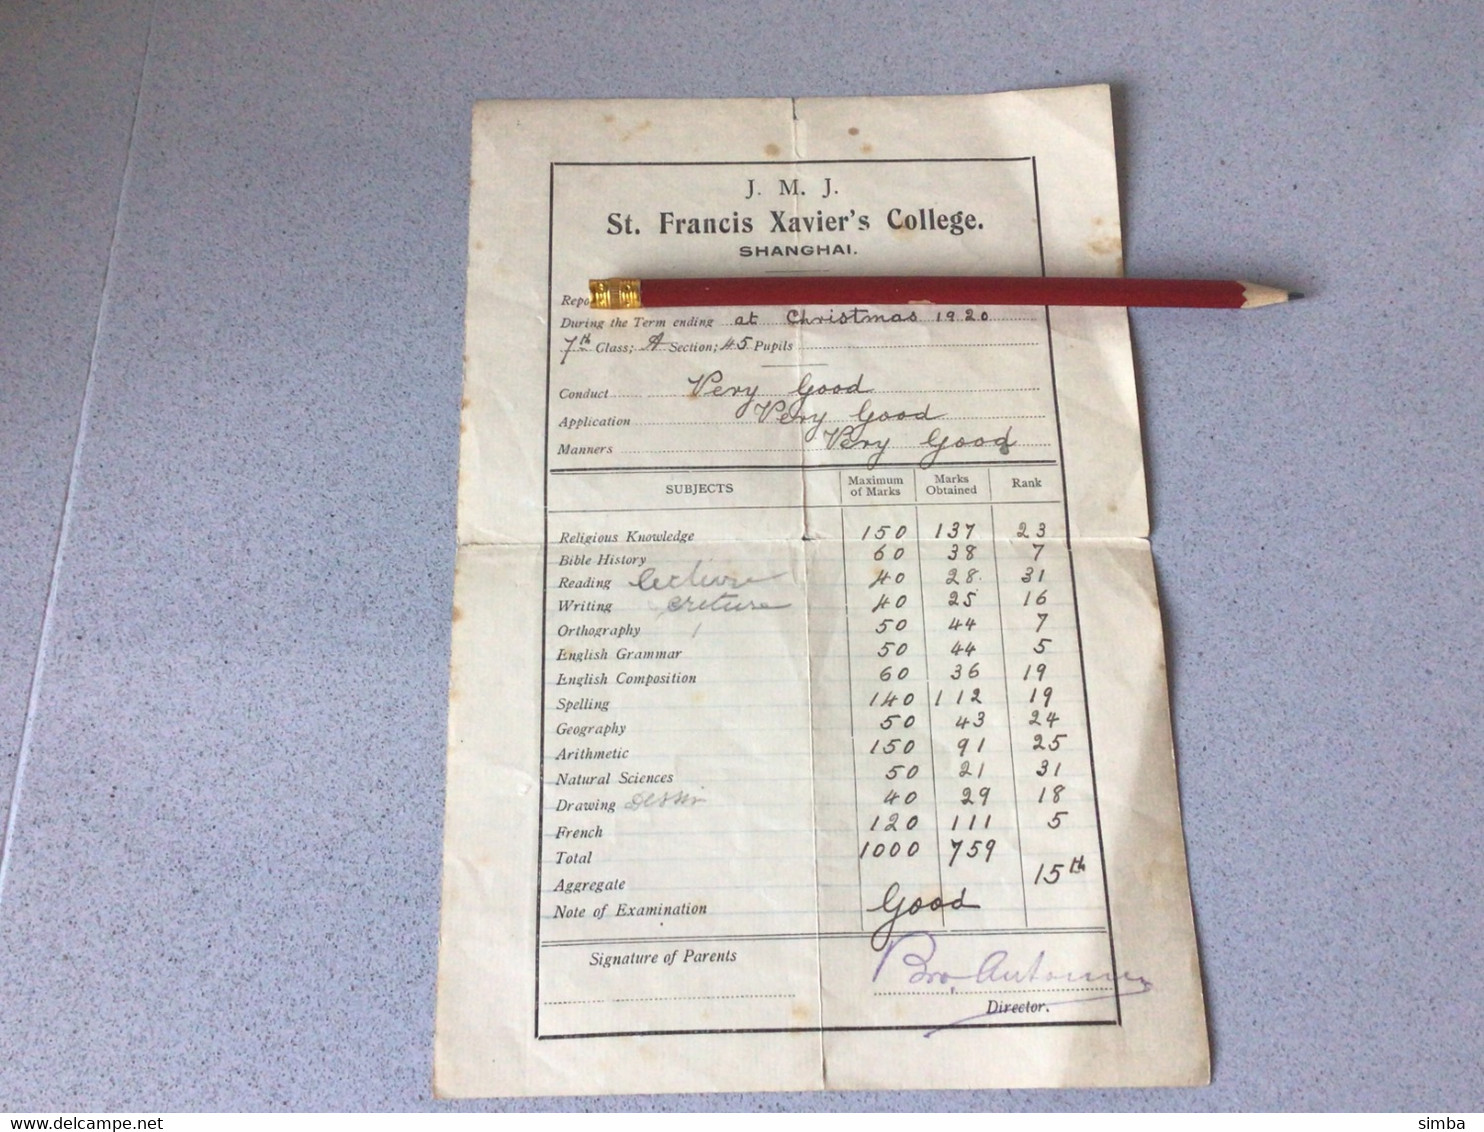 J. M. J.
St. Francis Xavier's College.
SHANGHAI.
Repo
During the Term ending at Christmas 1920
7th Class; A Section; 45 Pupils
Conduct Very Good
Application Very Good
Manners Very Good
SUBJECTS Maximum of Marks Marks Obtained Rank
Religious Knowledge 150 137 23
Bible History 60 38 7
Reading lecture 40 28 31
Writing ecriture 40 25 16
Orthography 50 44 7
English Grammar 50 44 5
English Composition 60 36 19
Spelling 140 112 19
Geography 50 43 24
Arithmetic 150 91 25
Natural Sciences 50 21 31
Drawing Dessin 40 29 18
French 120 111 5
Total 1000 759
Aggregate 15th
Note of Examination Good
Signature of Parents
Bro,
Director.
delcampe.net
simba